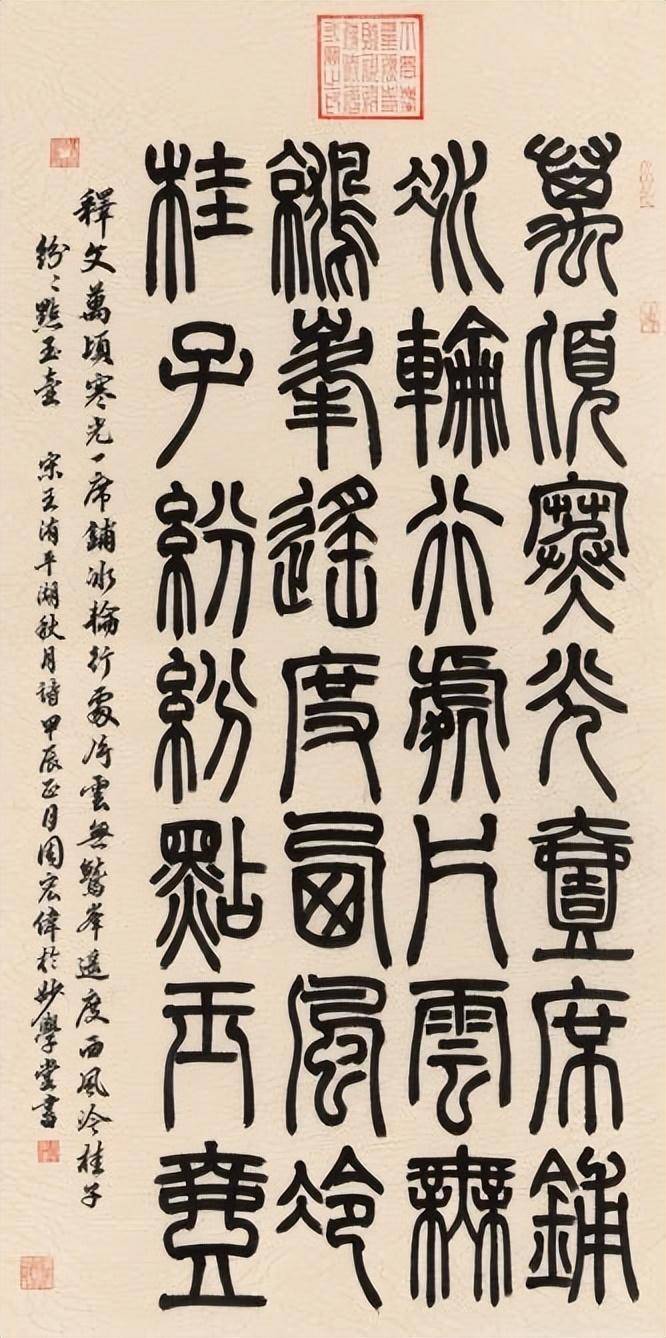 萬頃寒光壹席鋪
冰輪行處片雲無
鷲峯遙度西風冷
桂子紛紛點玉壺
釋文萬頃寒光一席鋪冰輪行處片雲無鷲峯遙度西風冷桂子
紛〻點玉壺 宋王洧平湖秋月詩甲辰正月周宏偉於妙學堂書